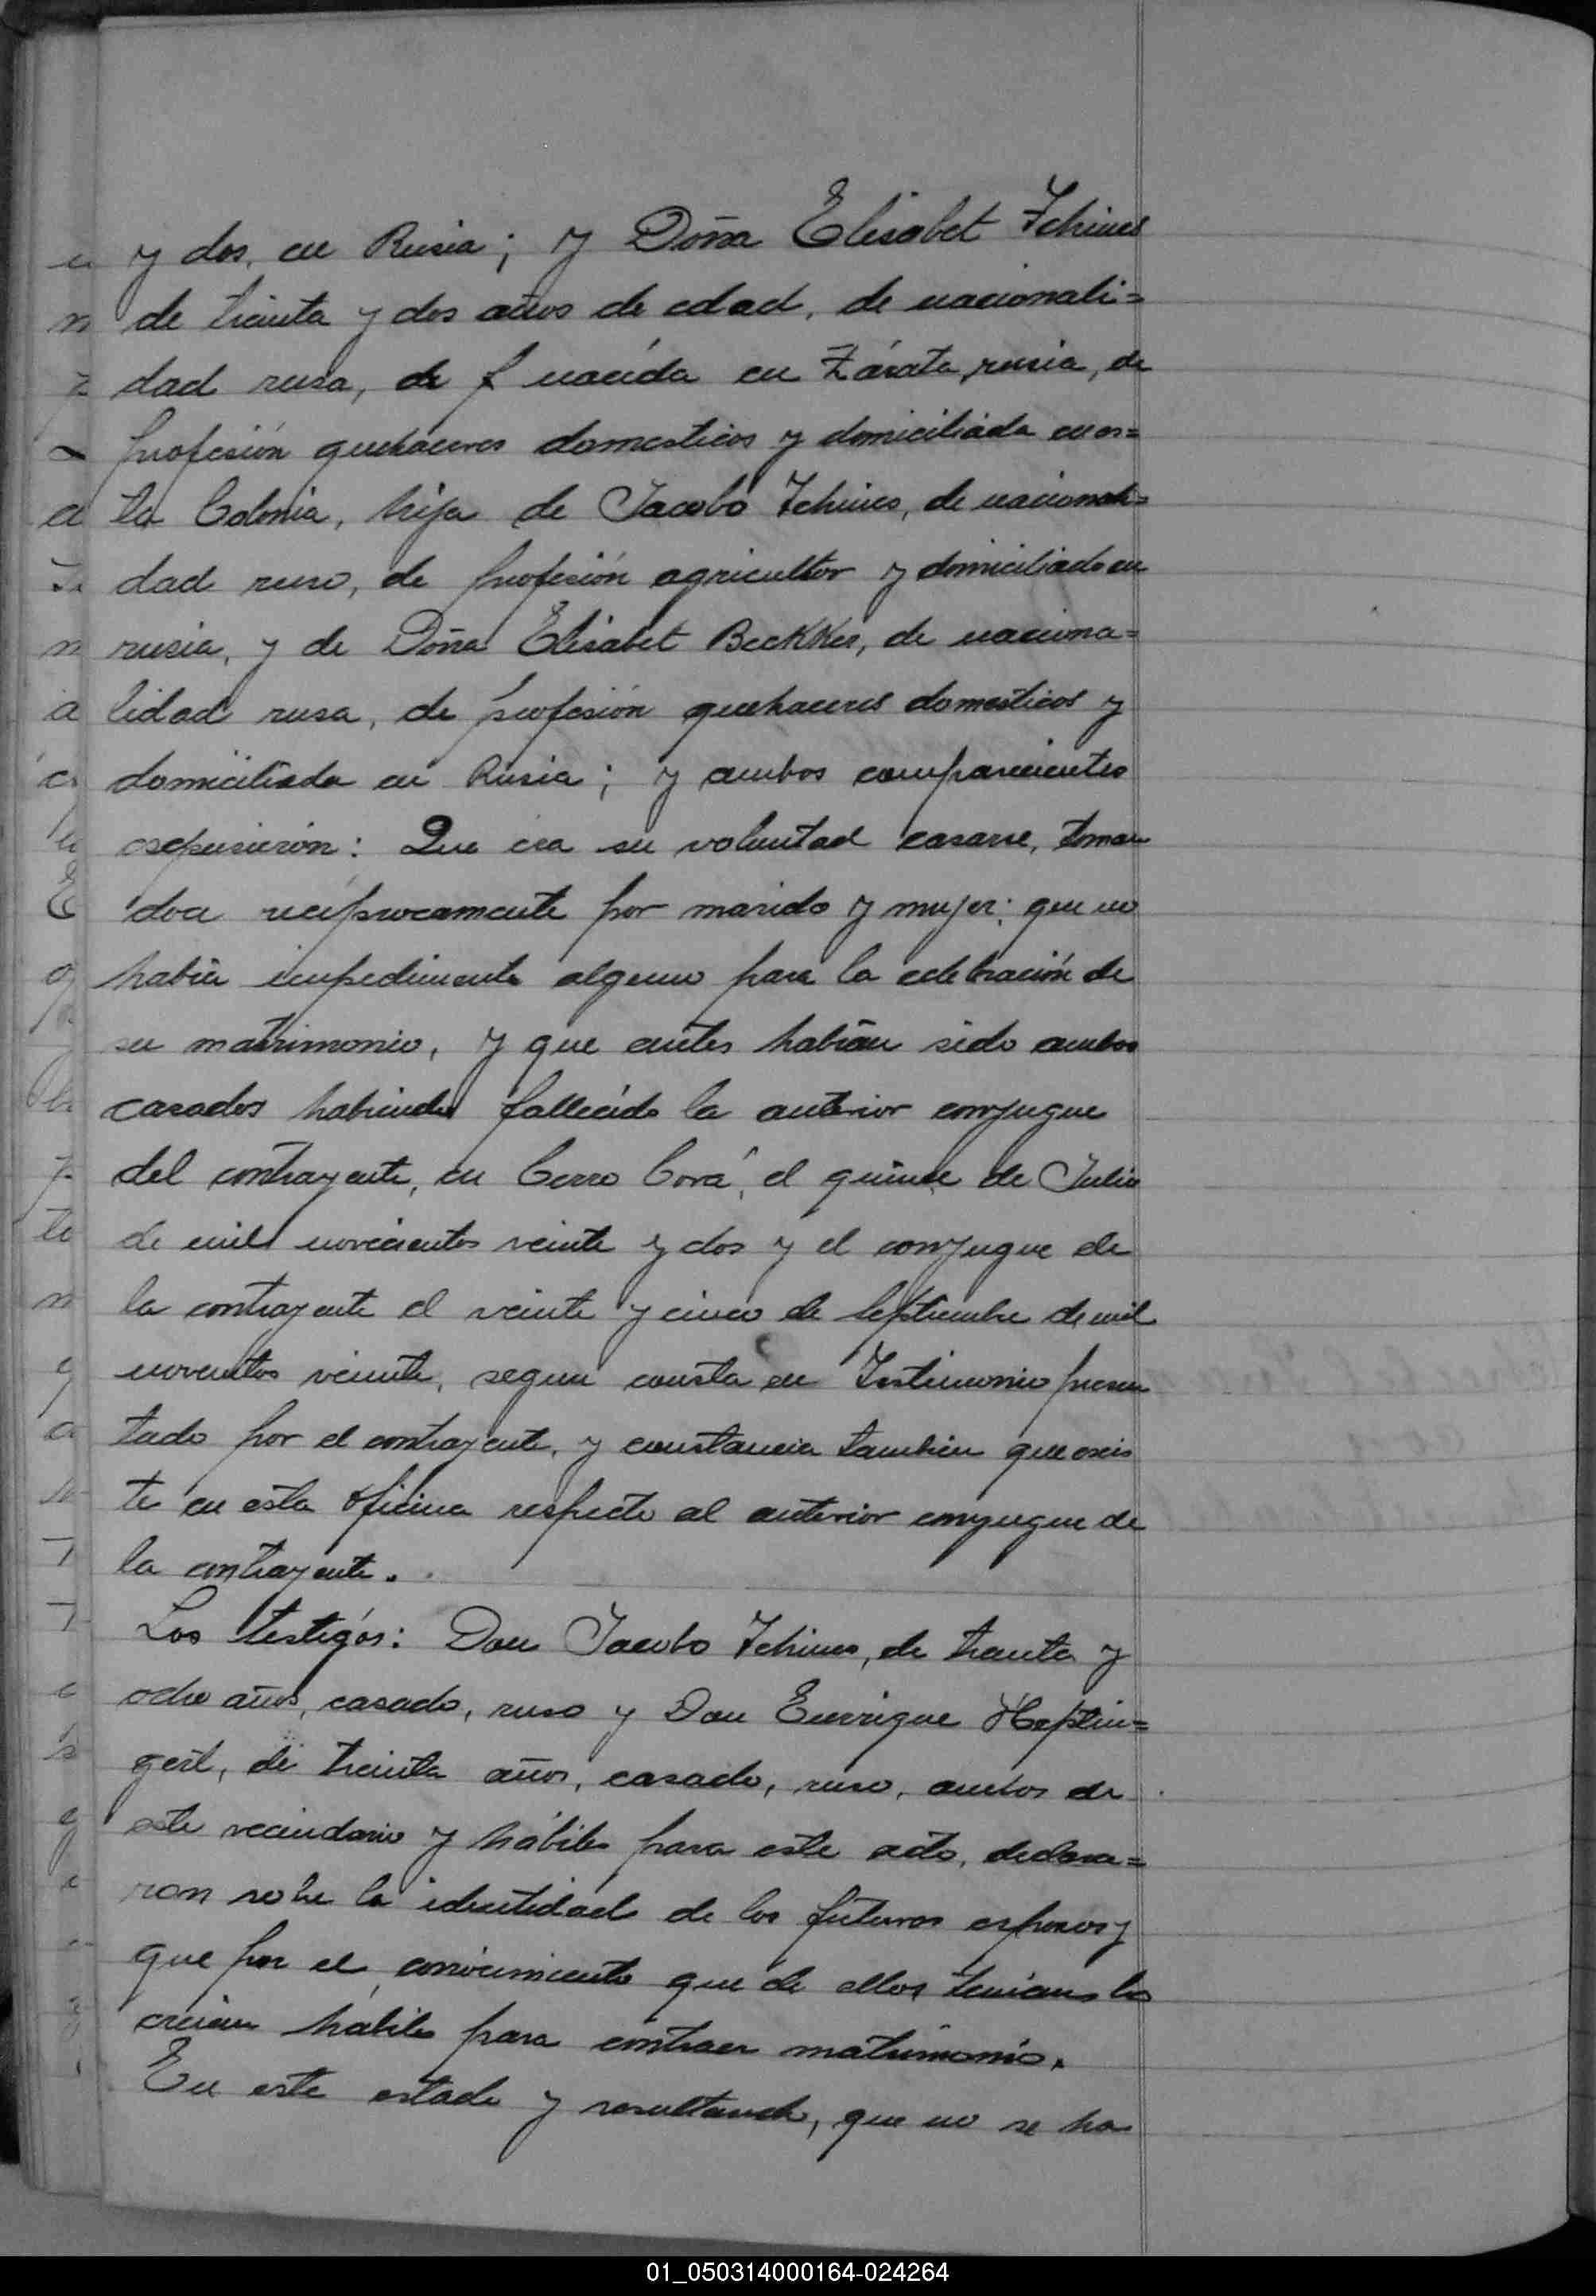 y dos, en Rusia; y Doña Elisabet Ichines
de treinta y dos años de edad, de nacionali=
dad rusa, de f nacida en Zárata, rusia, de
profesión quehaceres domesticos y domiciliada en es=
ta Colonia, hija de Jacobo Ichines, de nacionali=
dad ruso, de profesión agricultor y domiciliado en
rusia, y de Doña Elisabet Beckker, de naciona=
lidad rusa, de profesión quehaceres domesticos y
domiciliada en Rusia; y ambos comparecientes
expusieron: Que era su voluntad casarse, toman
dose recíprocamente por marido y mujer; que no
había impedimento alguno para la celebración de
su matrimonio, y que antes habían sido ambos
casados habiendo fallecido la anterior conyugue
del contrayente, en Cerro Corá, el quince de Julio
de mil novecientos veinte y dos y el conyugue de
la contrayente el veinte y cinco de Septiembre de mil
noventos veinte, segun consta en Testimonio presen
tado por el contrayente, y constancia tambien que exis
te en esta oficina respecto al anterior conyugue de
la contrayente.
Los testigos: Don Jacobo Ichines, de treinta y
ocho años, casado, ruso y Don Enrrique Heptin=
gert, de treinta años, casado, ruso, ambos de
este vecindario y hábiles para este acto, declara=
ron sobre la identidad de los futuros esposos y
que por el conocimiento que de ellos tenian los
creian hábiles para contraer matrimonio.
En este estado y resultando, que no se ha
01_050314000164-024264